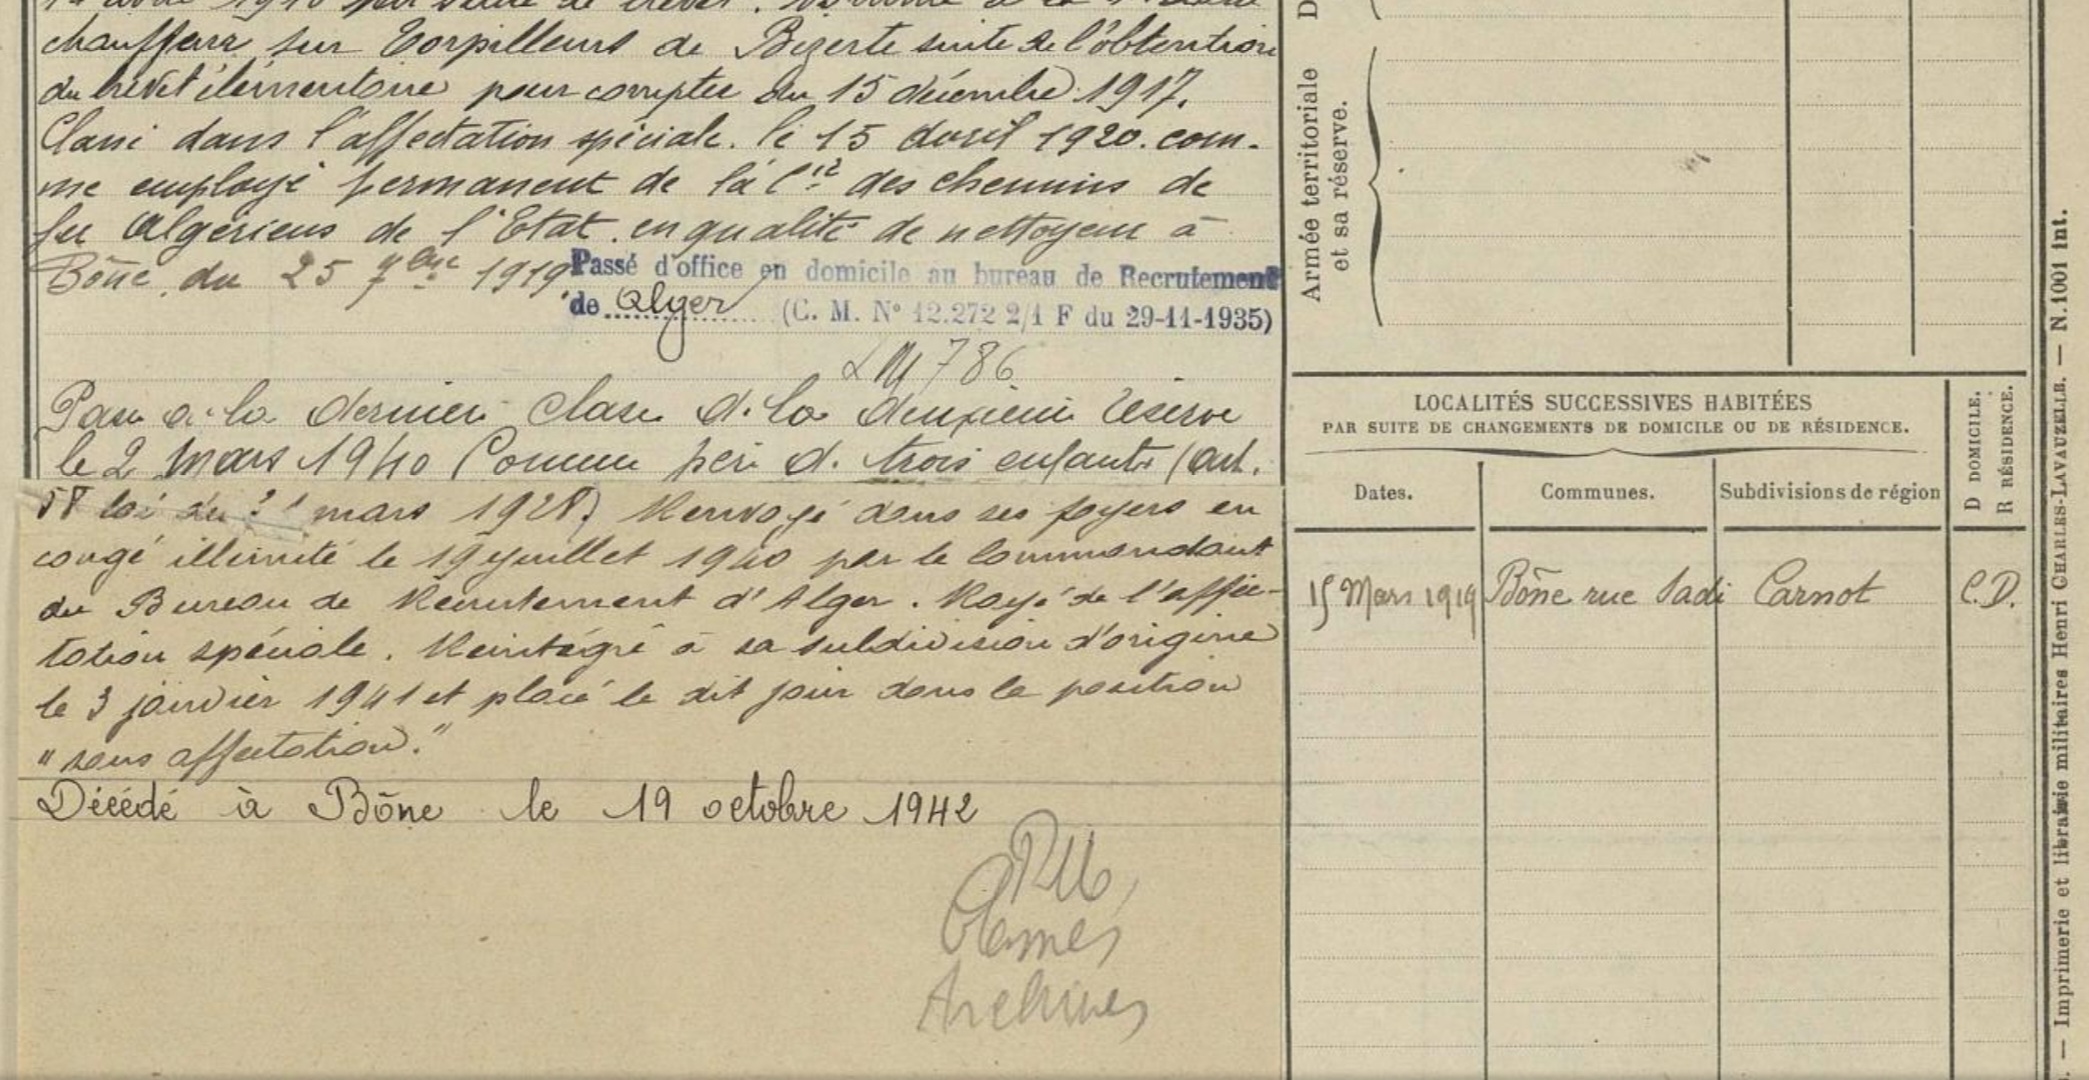 chauffeur sur Torpilleurs de Bizerte suite de l'obtention
du brevet élémentaire pour compter du 15 décembre 1917.
Classé dans l'affectation spéciale. le 15 avril 1920. com-
me employé permanent de la Cie des chemins de
fer Algériens de l'Etat. en qualité de nettoyeur à
Bône, du 25 7bre 1919.
Passé d'office en domicile au bureau de Recrutement
de Alger (C. M. N° 12.272 2/1 F du 29-11-1935)
786
Passé à la dernier classe de la deuxième réserve
le 2 mars 1940 Comme père d. trois enfants (art.
58 loi du mars 1928) Renvoyé dans ses foyers en
congé illimité le 19 juillet 1940 par le Commandant
du Bureau de Recrutement d'Alger. Rayé de l'affec-
tation spéciale. Réintégré à sa subdivision d'origine
le 3 janvier 1941 et placé le dit jour dans la position
"sans affectation."
Décédé à Bône le 19 octobre 1942
Archives
Armée territoriale
et sa réserve.
LOCALITÉS SUCCESSIVES HABITÉES
PAR SUITE DE CHANGEMENTS DE DOMICILE OU DE RÉSIDENCE.
Dates. Communes. Subdivisions de région D DOMICILE. R RÉSIDENCE.
15 Mars 1919 Bône rue Sadi Carnot C.D.
— Imprimerie et librairie militaires Henri CHARLES-LAVAUZELLE. — N. 1001 int.